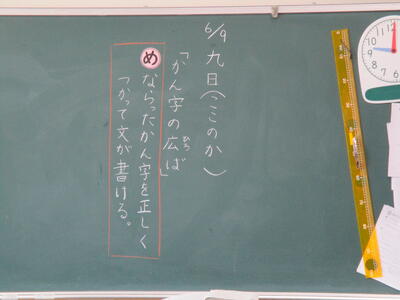 6/9 九日(ここのか)
「かん字の広ば」
ひろ
め ならったかん字を正しく
つかって文が書ける。